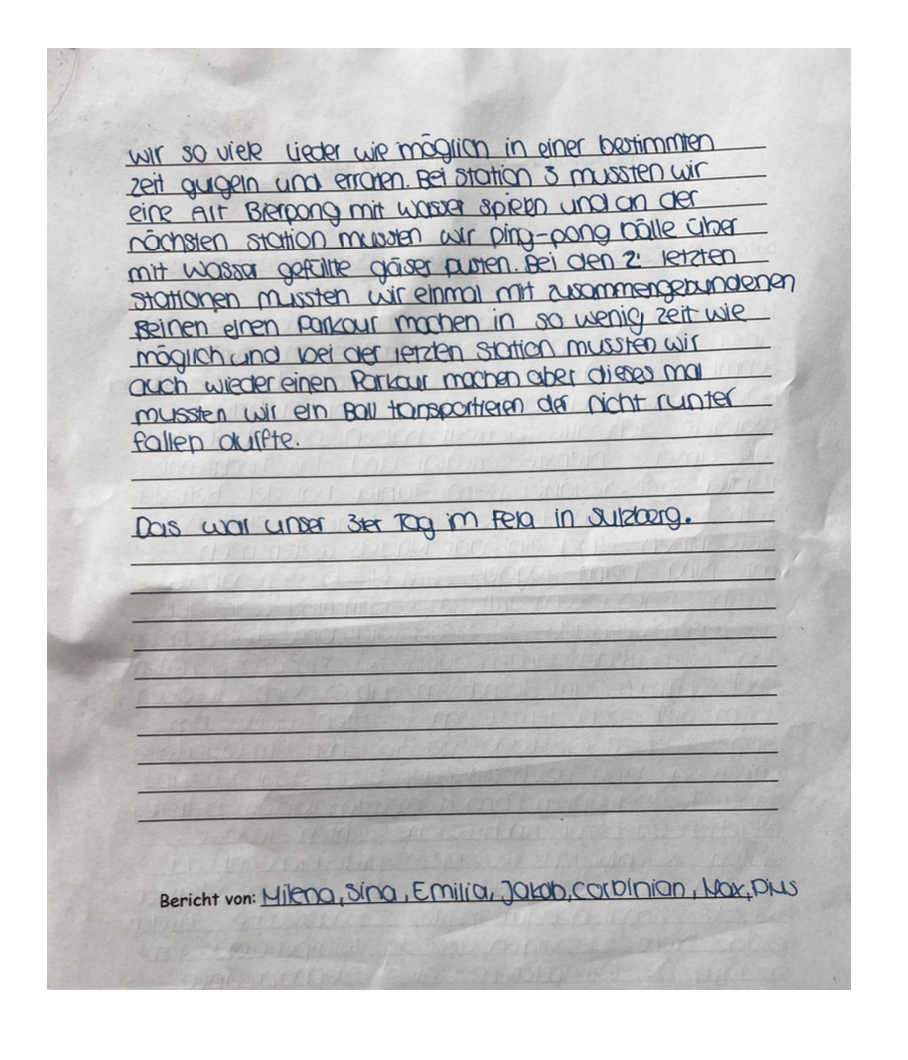 wir so viele Lieder wie möglich in einer bestimmten
zeit gurgeln und erraten. Bei Station 3 mussten wir
eine Art Bierpong mit wasser spieln und an der
nächsten Station mussten wir ping-pong bälle über
mit wasser gefüllte gäser pusten. Bei den 2 letzten
Stationen mussten wir einmal mit zusammengebundenen
Beinen einen Parkour machen in so wenig zeit wie
möglich und bei der letzten Station mussten wir
auch wieder einen Parkour machen aber dieses mal
mussten wir ein Ball tansportieren der nicht runter
fallen durfte.
Das war unser 3ter Tag im Fela in Sulzberg.
Bericht von: Milena, Sina, Emilia, Jakob, Corbinian, Max, Pius